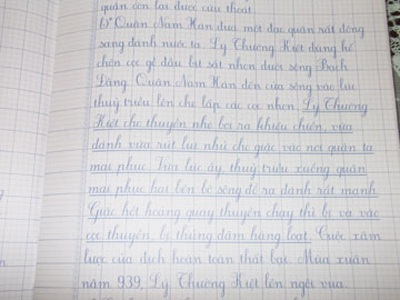 quân còn lại được cứu thoát.
b) Quân Nam Hán đưa một đạo quân rất đông
sang đánh nước ta. Lý Thường Kiệt dùng kế
chôn cọc gỗ đầu bịt sắt nhọn dưới sông Bạch
Đằng. Quân Nam Hán đến cửa sông vào lúc
thuỷ triều lên che lấp các cọc nhọn. Lý Thường
Kiệt cho thuyền nhẹ bơi ra khiêu chiến, vừa
đánh vừa rút lui nhử cho giặc vào nơi quân ta
mai phục. Vừa lúc ấy thuỷ triều xuống quân
mai phục hai bên bờ sông đổ ra đánh rất mạnh.
Giặc hốt hoảng quay thuyền chạy thì bị va vào
cọc thuyền bị thủng đắm hàng loạt. Cuộc xâm
lược của địch hoàn toàn thất bại. Mùa xuân
năm 939, Lý Thường Kiệt lên ngôi vua.